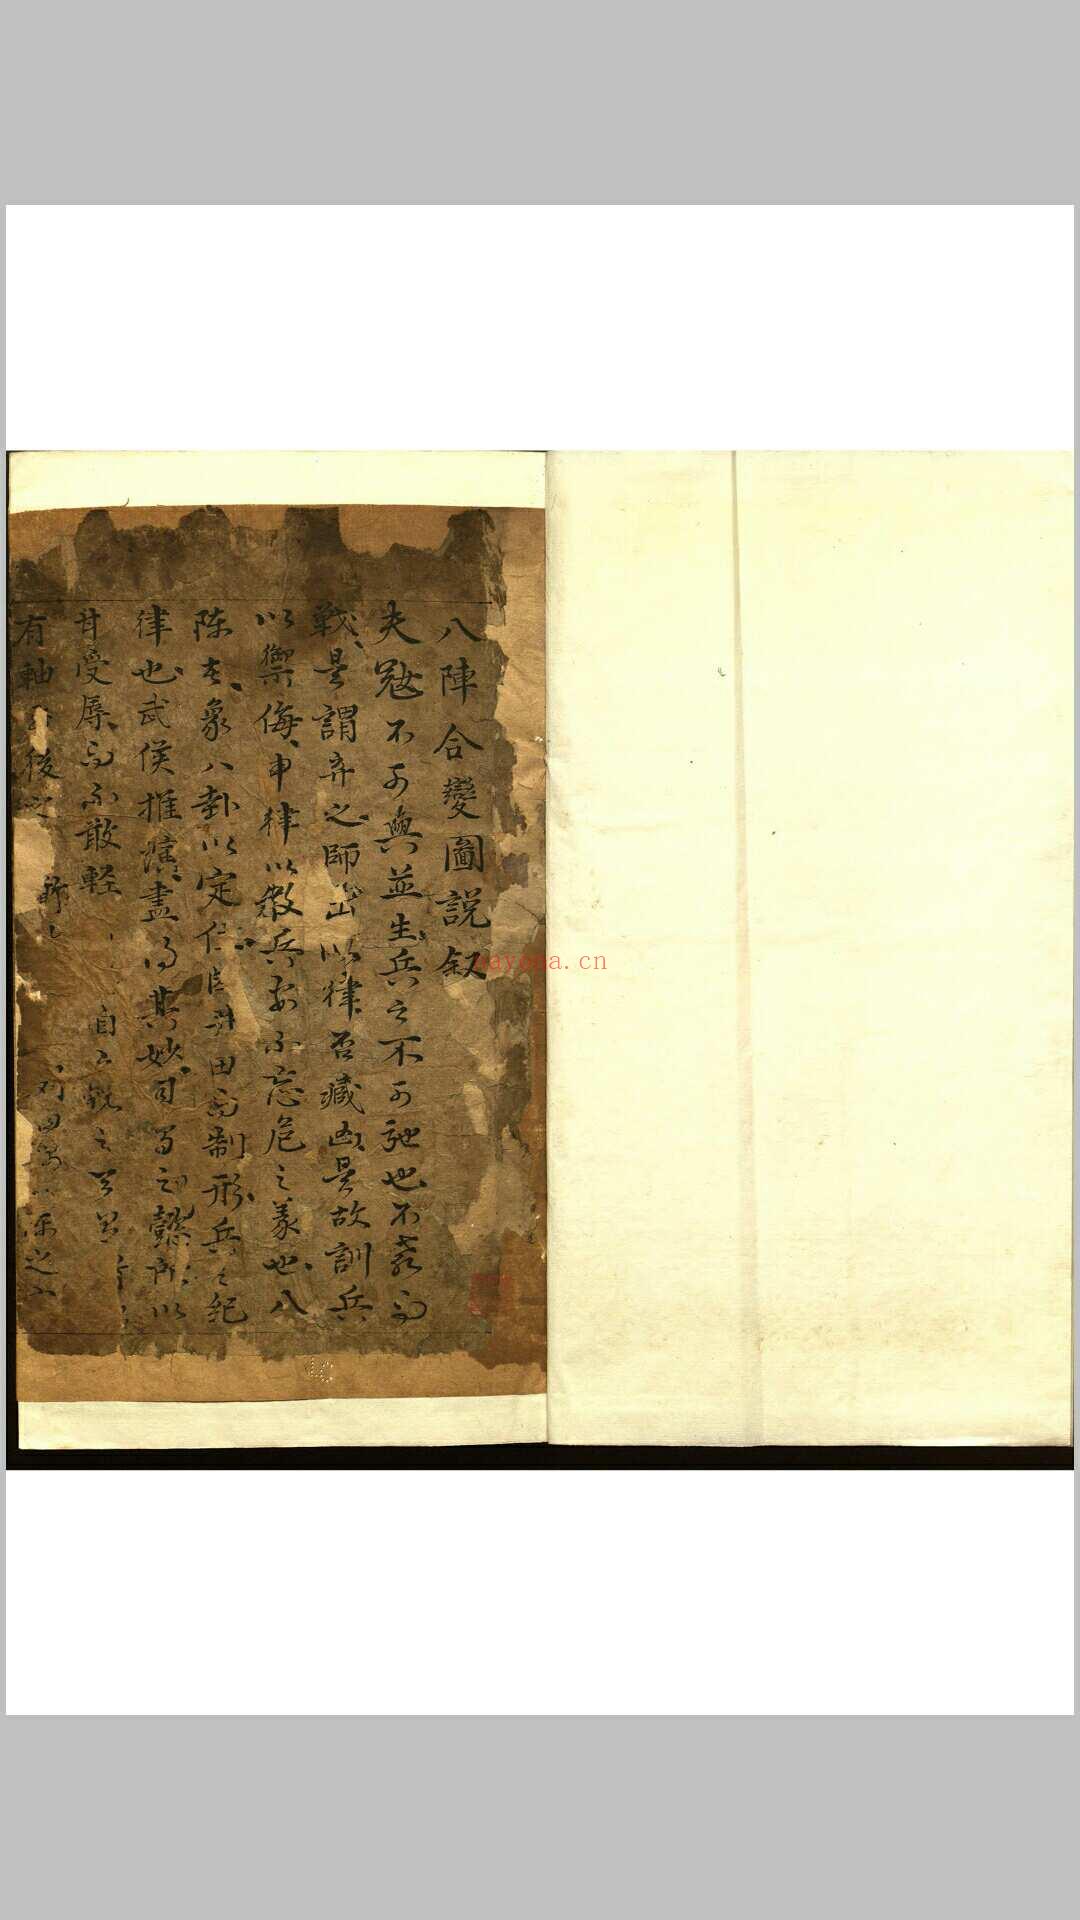 八陣合變圖說敘
夫寇不可與並生兵之不可弛也不教而
戰是謂弃之師出以律否臧凶是故訓兵
以禦侮申律以教兵安不忘危之義也八
陳者象八卦以定位因井田而制形兵之紀
律也武侯推演盡得其妙司馬之懿所以
甘受辱而不敢輕 自 之
有 後之
aayona.cn